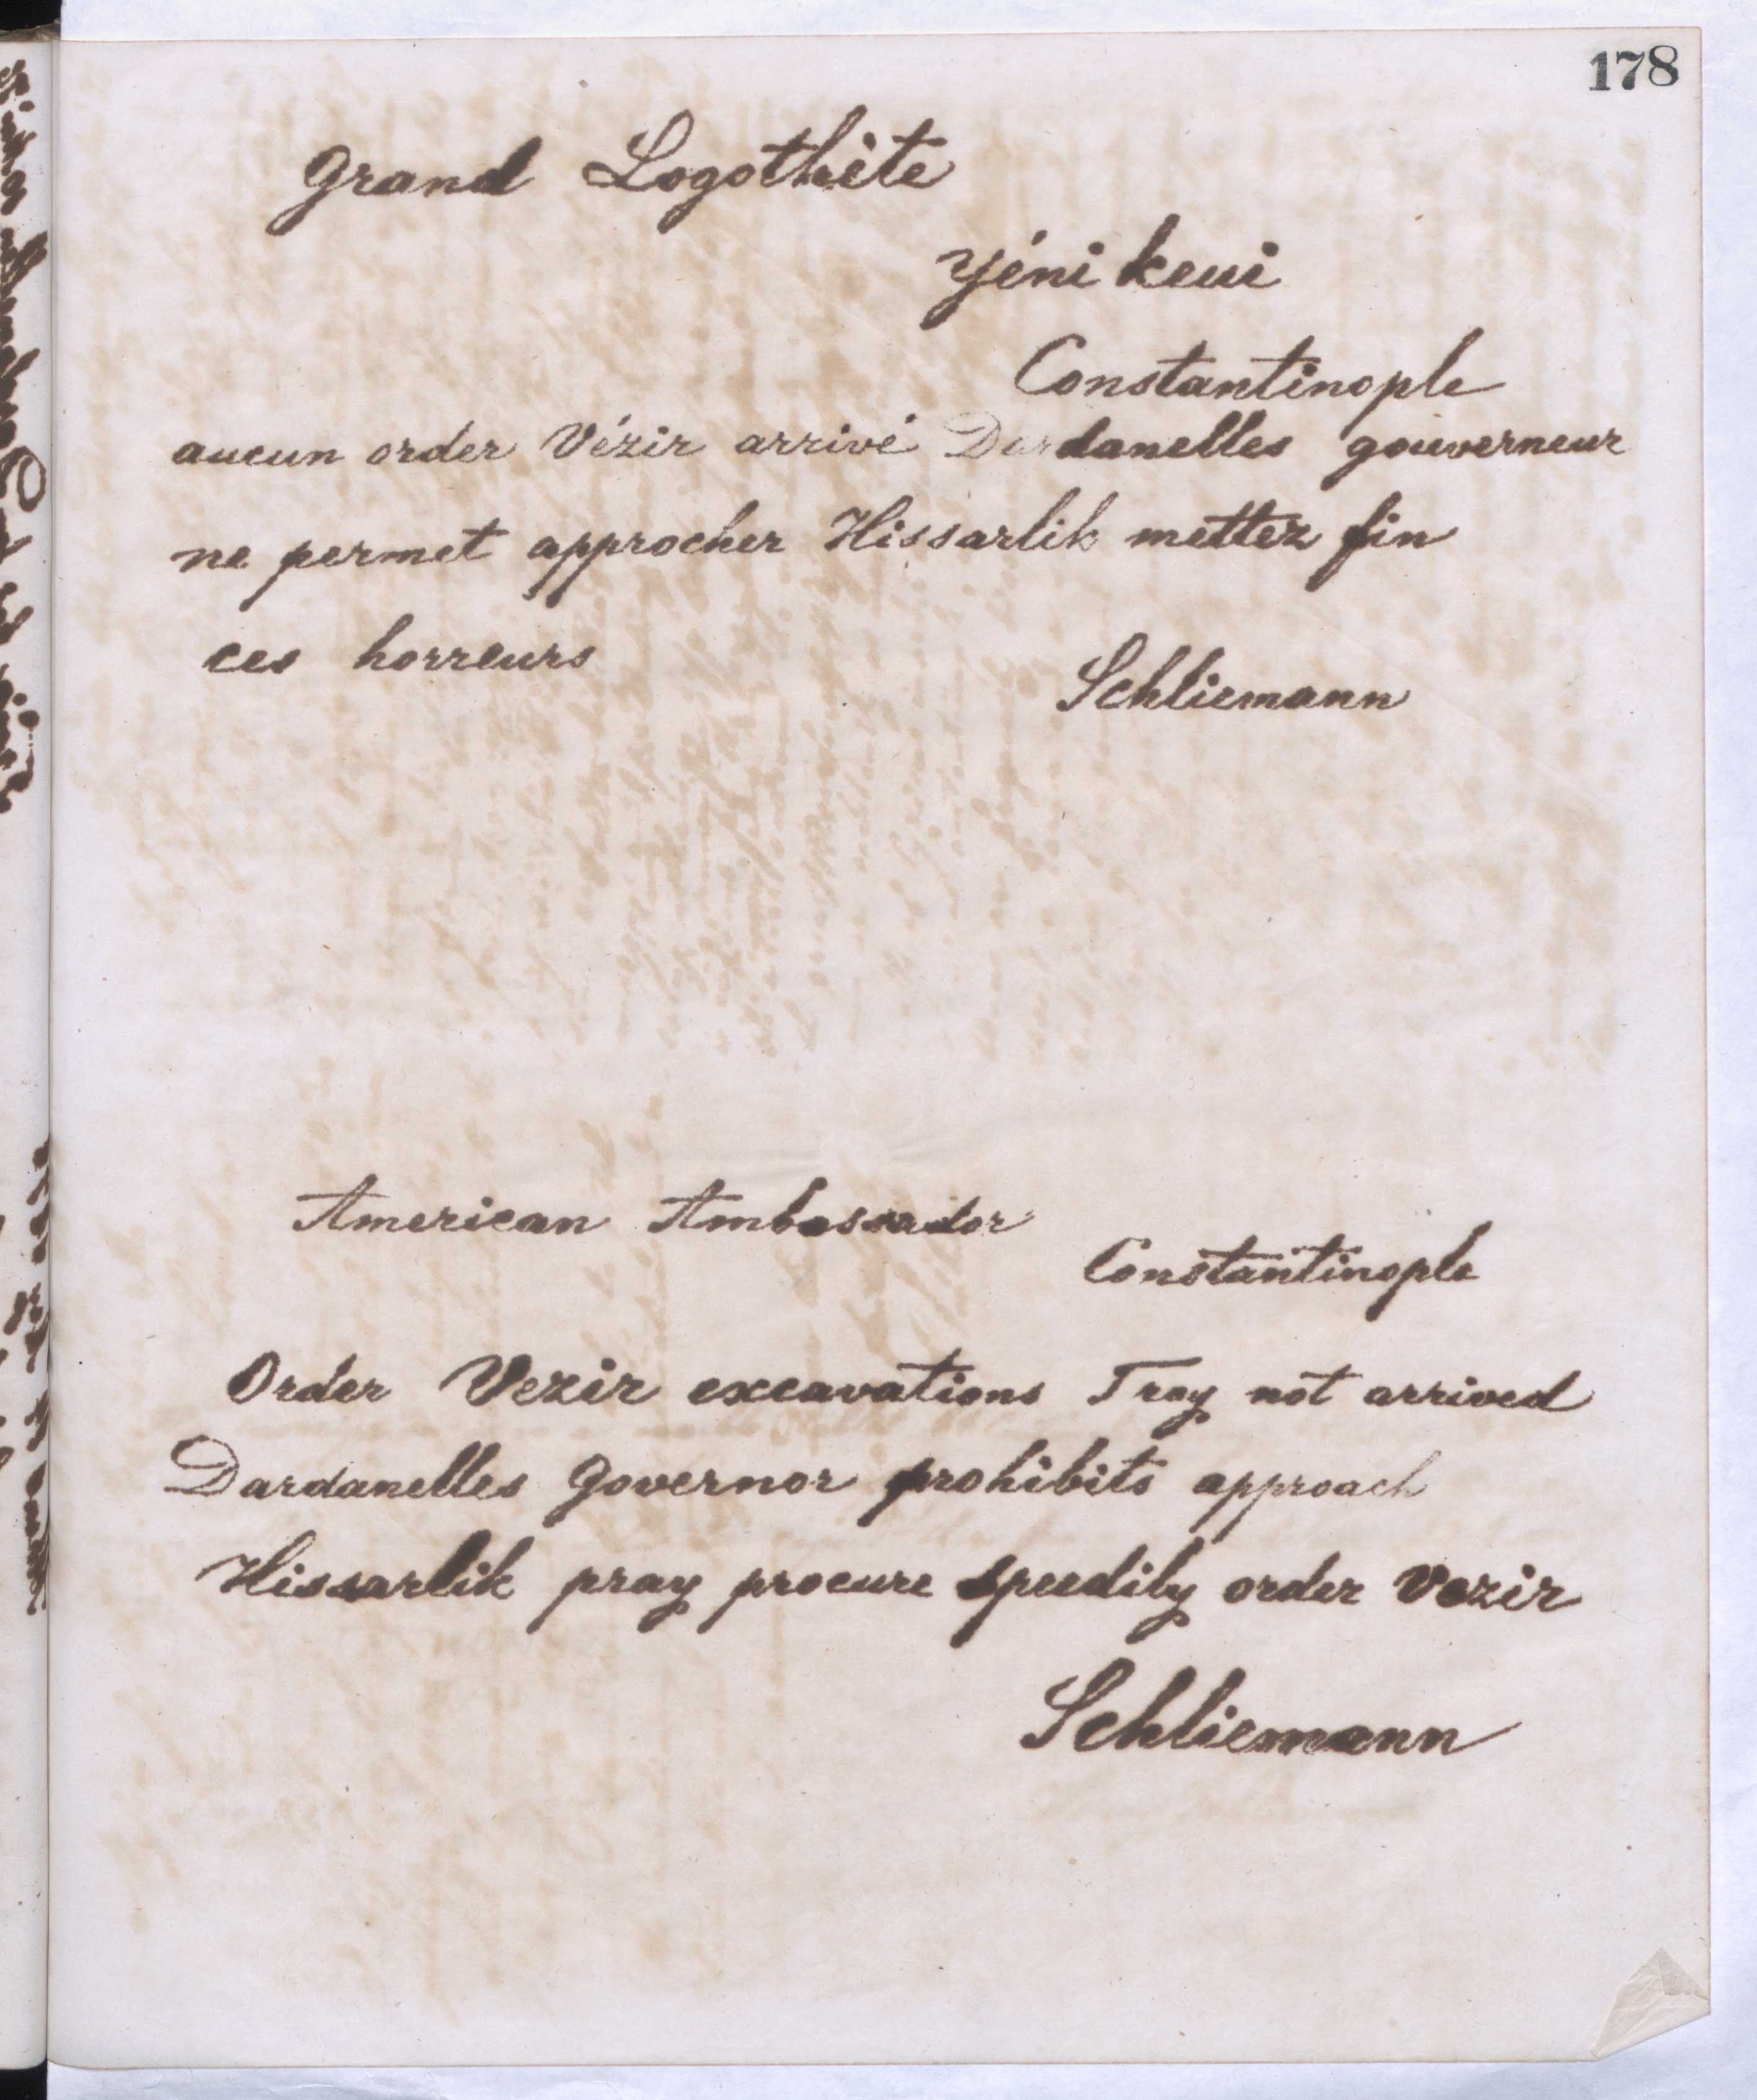 178
Grand Logothète
Yéni keui
Constantinople
aucun order Vézir arrivé Dardanelles gouverneur
ne permet approcher Hissarlik mettez fin
ces horreurs
Schliemann
American Ambassador
Constantinople
Order Vezir excavations Troy not arrived
Dardanelles Governor prohibits approach
Hissarlik pray procure speedily order Vezir
Schliemann